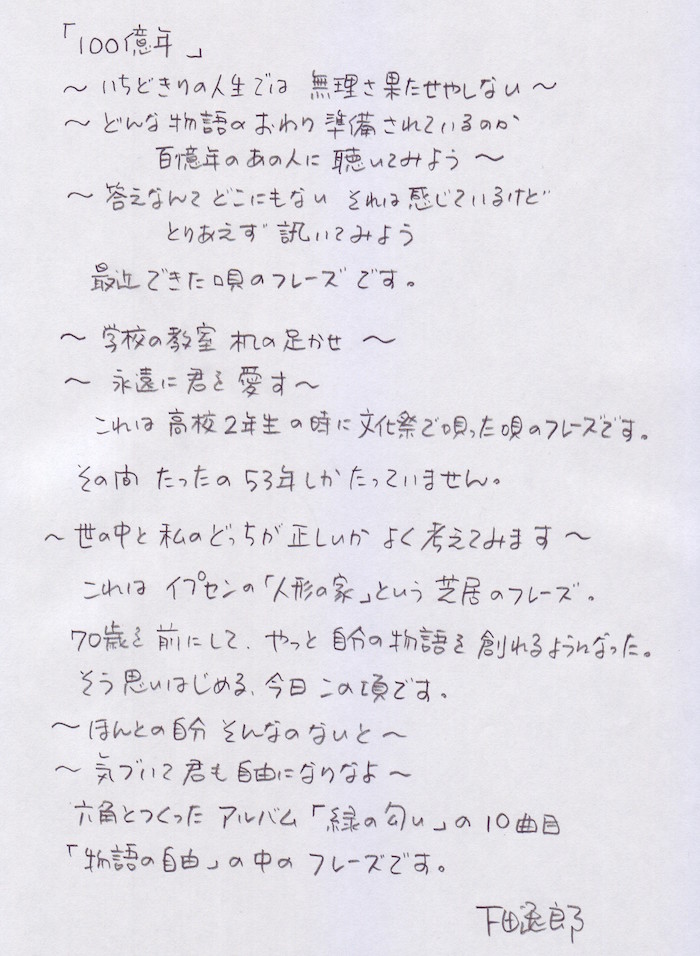 「100億年」
～ いちどきりの人生では 無理さ果たせやしない ～
～ どんな物語のおわり 準備されているのか
百億年のあの人に 聴いてみよう ～
～ 答えなんて どこにもない それは感じているけど
とりあえず 訊いてみよう
最近できた唄のフレーズです。
～ 学校の教室 机の足かせ ～
～ 永遠に君を愛す～
これは高校2年生の時に文化祭で唄った唄のフレーズです。
その間 たったの53年しかたっていません。
～ 世の中と私のどっちが正しいか よく考えてみます ～
これは イプセンの「人形の家」という芝居のフレーズ。
70歳を前にして、やっと自分の物語を創れるようになった。
そう思いはじめる、今日この頃です。
～ ほんとの自分 そんなのないと ～
～ 気づいて君も自由になりなよ ～
六角とつくった アルバム「緑の匂い」の10曲目
「物語の自由」の中のフレーズです。
下田逸郎